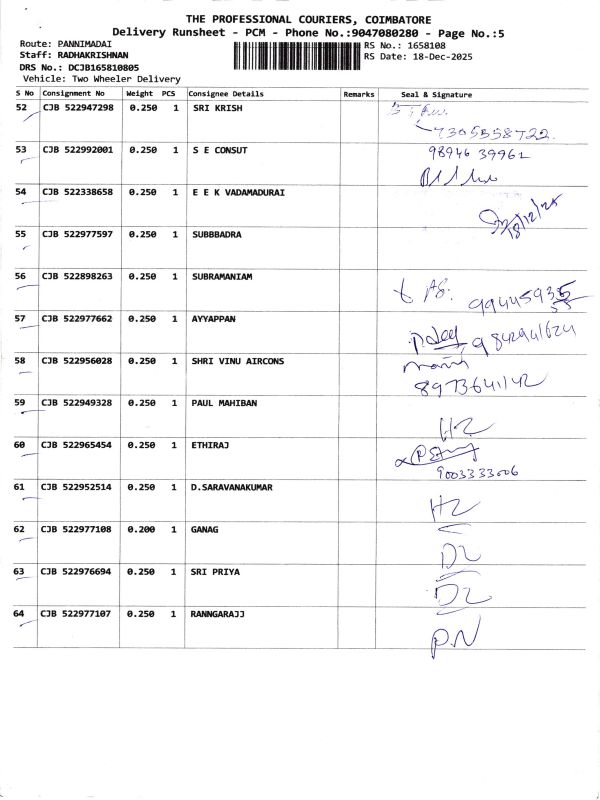 THE PROFESSIONAL COURIERS, COIMBATORE
Delivery Runsheet - PCM - Phone No.:9047080280 - Page No.:5
Route: PANNIMADAI
RS No.: 1658108
Staff: RADHAKRISHNAN
RS Date: 18-Dec-2025
DRS No.: DCJB165810805
Vehicle: Two Wheeler Delivery
S No Consignment No Weight PCS Consignee Details Remarks Seal & Signature
52 CJB 522947298 0.250 1 SRI KRISH
7305558722
53 CJB 522992001 0.250 1 S E CONSUT 98946 39961
54 CJB 522338658 0.250 1 E E K VADAMADURAI
18/12/25
55 CJB 522977597 0.250 1 SUBBBADRA
56 CJB 522898263 0.250 1 SUBRAMANIAM
57 CJB 522977662 0.250 1 AYYAPPAN
9842941624
58 CJB 522956028 0.250 1 SHRI VINU AIRCONS
8973641142
59 CJB 522949328 0.250 1 PAUL MAHIBAN
HZ
60 CJB 522965454 0.250 1 ETHIRAJ
9003333006
61 CJB 522952514 0.250 1 D.SARAVANAKUMAR
HZ
62 CJB 522977108 0.200 1 GANAG
DZ
63 CJB 522976694 0.250 1 SRI PRIYA
DZ
64 CJB 522977107 0.250 1 RANNGARAJJ
P.N